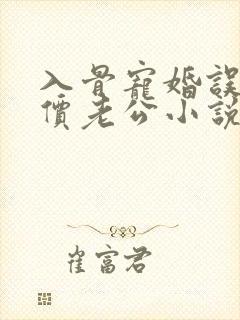 入骨寵婚誤
價老公小說
崔富君